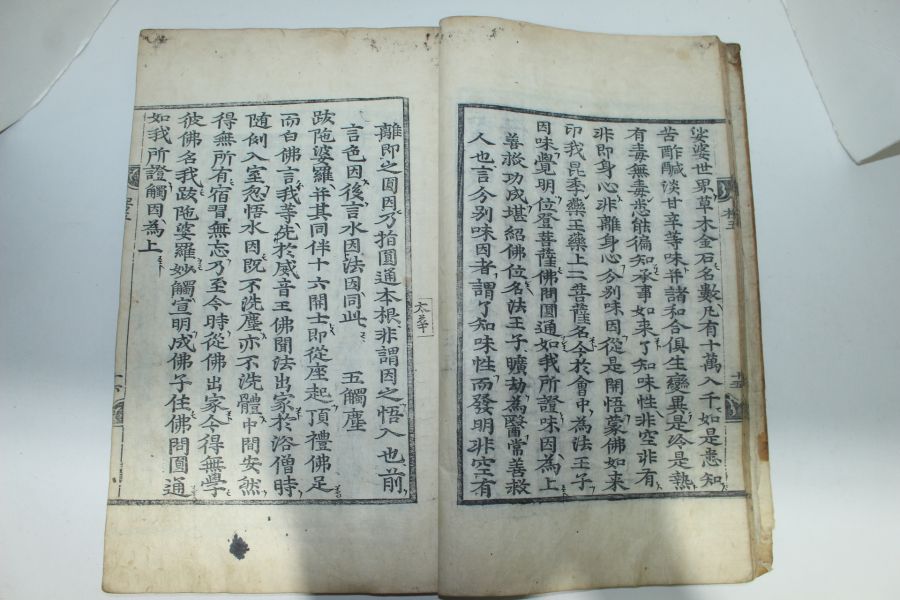 娑婆世界草木金石名數凡有十萬八千如是悉知
苦酢鹹淡甘辛等味并諸和合俱生變異是冷是熱
有毒無毒悉能徧知承事如來了知味性非空非有
非即身心非離身心分別味因從是開悟蒙佛如來
印我昆季藥王藥上二菩薩名今於會中為法王子
因味覺明位登菩薩佛問圓通如我所證味因為上
善救功成堪紹佛位名法王子曠劫為醫常善救
人也言分別味因者謂了知味性而發明非空有
離即之圓因乃指圓通本根非謂因之悟入也前
言色因後言水因法因同此 五觸塵
跋陁婆羅并其同伴十六開士即從座起頂禮佛足
而白佛言我等先於威音王佛聞法出家於浴僧時
隨例入室忽悟水因既不洗塵亦不洗體中間安然
得無所有宿習無忘乃至今時從佛出家今得無學
彼佛名我跋陁婆羅妙觸宣明成佛子住佛問圓通
如我所證觸因為上